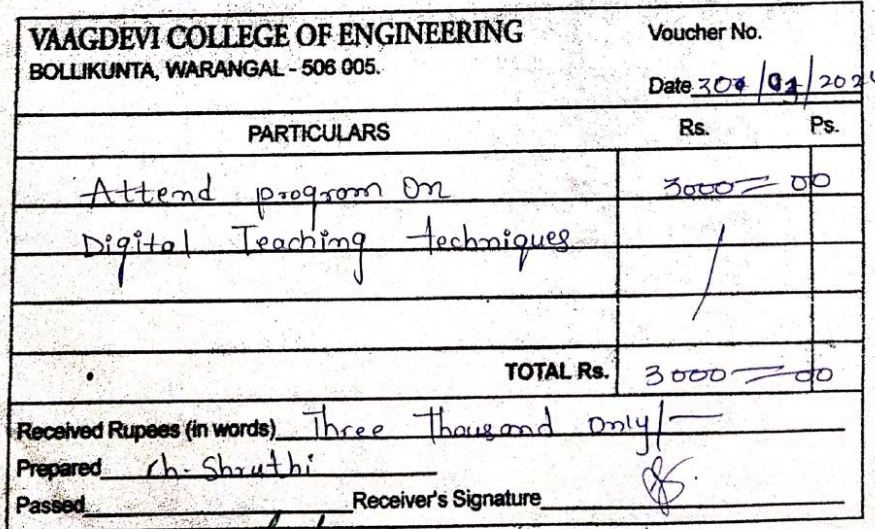 VAAGDEVI COLLEGE OF ENGINEERING
Voucher No.
BOLLIKUNTA, WARANGAL - 506 005.
Date
PARTICULARS Rs. Ps.
Attend program On 3000=00
Digital Teaching techniques
TOTAL Rs. 3000=00
Received Rupees (in words) Three Thousand Only/-
Prepared Ch. Shruthi
Passed Receiver's Signature